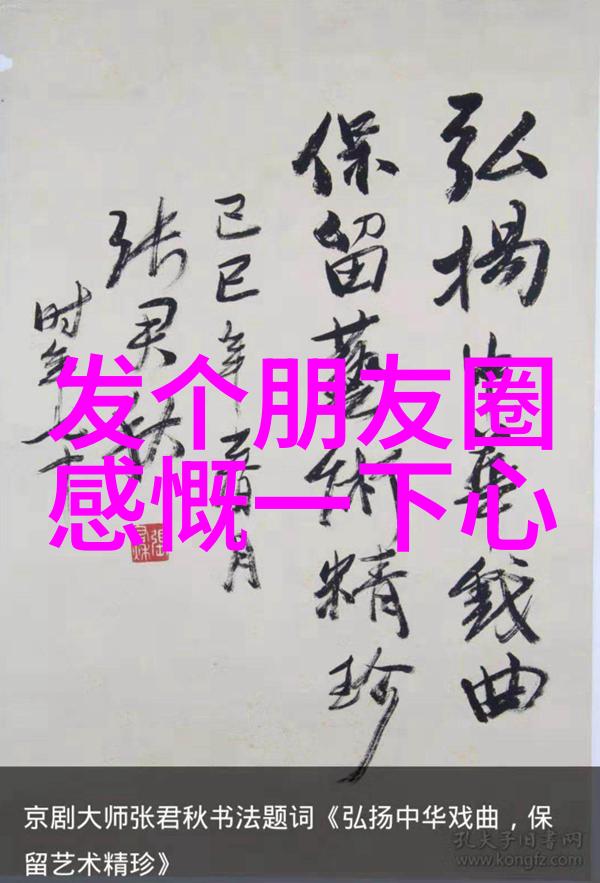 弘揚中華戲曲
保留藝術精珍
己巳年五月
张君秋
时年七十
发个朋友圈
感慨一下心
京剧大师张君秋书法题词《弘扬中华戏曲，保
留艺术精珍》
孔夫子旧书网
www.kongfz.com